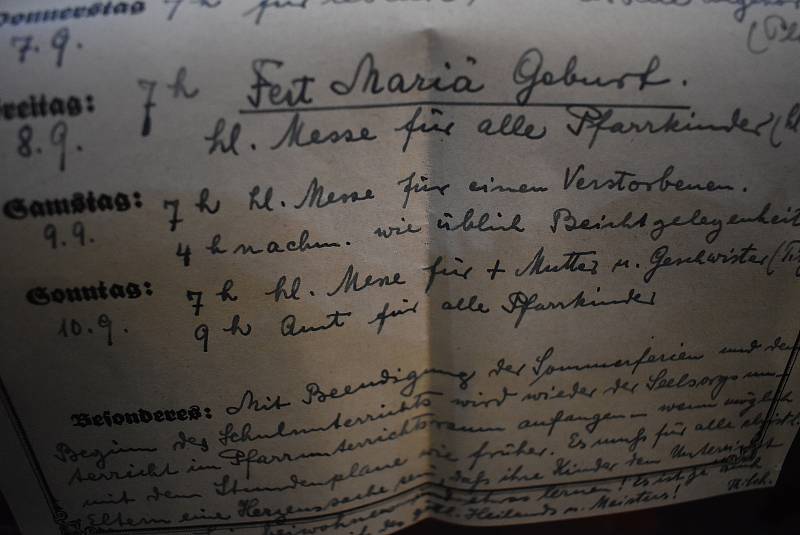 Donnerstag 7 h
7.9.
Freitag: 7 h Fest Mariä Geburt.
8.9. hl. Messe für alle Pfarrkinder
Samstag: 7 h hl. Messe für einen Verstorbenen.
9.9. 4 h nachm. wie üblich Beichtgelegenheit
Sonntag: 7 h hl. Messe für + Mutter u. Geschwister
10.9. 9 h Amt für alle Pfarrkinder
Besonderes: Mit Beendigung der Sommerferien und dem
Beginn des Schulunterrichts wird wieder der Seelsorgsun-
terricht im Pfarrunterrichtsraum anfangen – wenn möglich
mit dem Stundenplane wie früher. Es muß für alle christl.
Eltern eine Herzenssache sein, daß ihre Kinder dem Unterricht
beiwohnen und etwas lernen! Es ist ja
des göttl. Heilands u. Meisters!